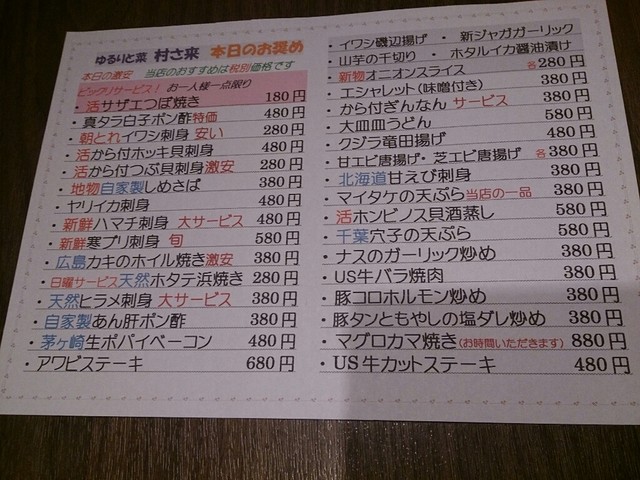 ゆるりと菜 村さ来 本日のお奨め
本日の激安 当店のおすすめは税別価格です
ビックリサービス! お一人様一点限り
・活サザエつぼ焼き 180円
・真タラ白子ポン酢特価 480円
・朝とれイワシ刺身 安い 280円
・活から付ホッキ貝刺身 480円
・活から付つぶ貝刺身激安 280円
・地物自家製しめさば 380円
・ヤリイカ刺身 480円
・新鮮ハマチ刺身 大サービス 480円
・新鮮寒ブリ刺身 旬 580円
・広島カキのホイル焼き激安 380円
・日曜サービス天然ホタテ浜焼き 280円
・天然ヒラメ刺身 大サービス 380円
・自家製あん肝ポン酢 380円
・茅ヶ崎生ポパイベーコン 480円
・アワビステーキ 680円
・イワシ磯辺揚げ ・ 新ジャガガーリック
・山芋の千切り ・ ホタルイカ醤油漬け
・新物オニオンスライス 各280円
・エシャレット(味噌付き) 380円
・から付ぎんなん サービス 380円
・大皿皿うどん 580円
・クジラ竜田揚げ 480円
・甘エビ唐揚げ・芝エビ唐揚げ 各380円
・北海道甘えび刺身 380円
・マイタケの天ぷら当店の一品 380円
・活ホンビノス貝酒蒸し 580円
・千葉穴子の天ぷら 580円
・ナスのガーリック炒め 380円
・US牛バラ焼肉 380円
・豚コロホルモン炒め 380円
・豚タンともやしの塩ダレ炒め 380円
・マグロカマ焼き(お時間いただきます) 880円
・US牛カットステーキ 480円